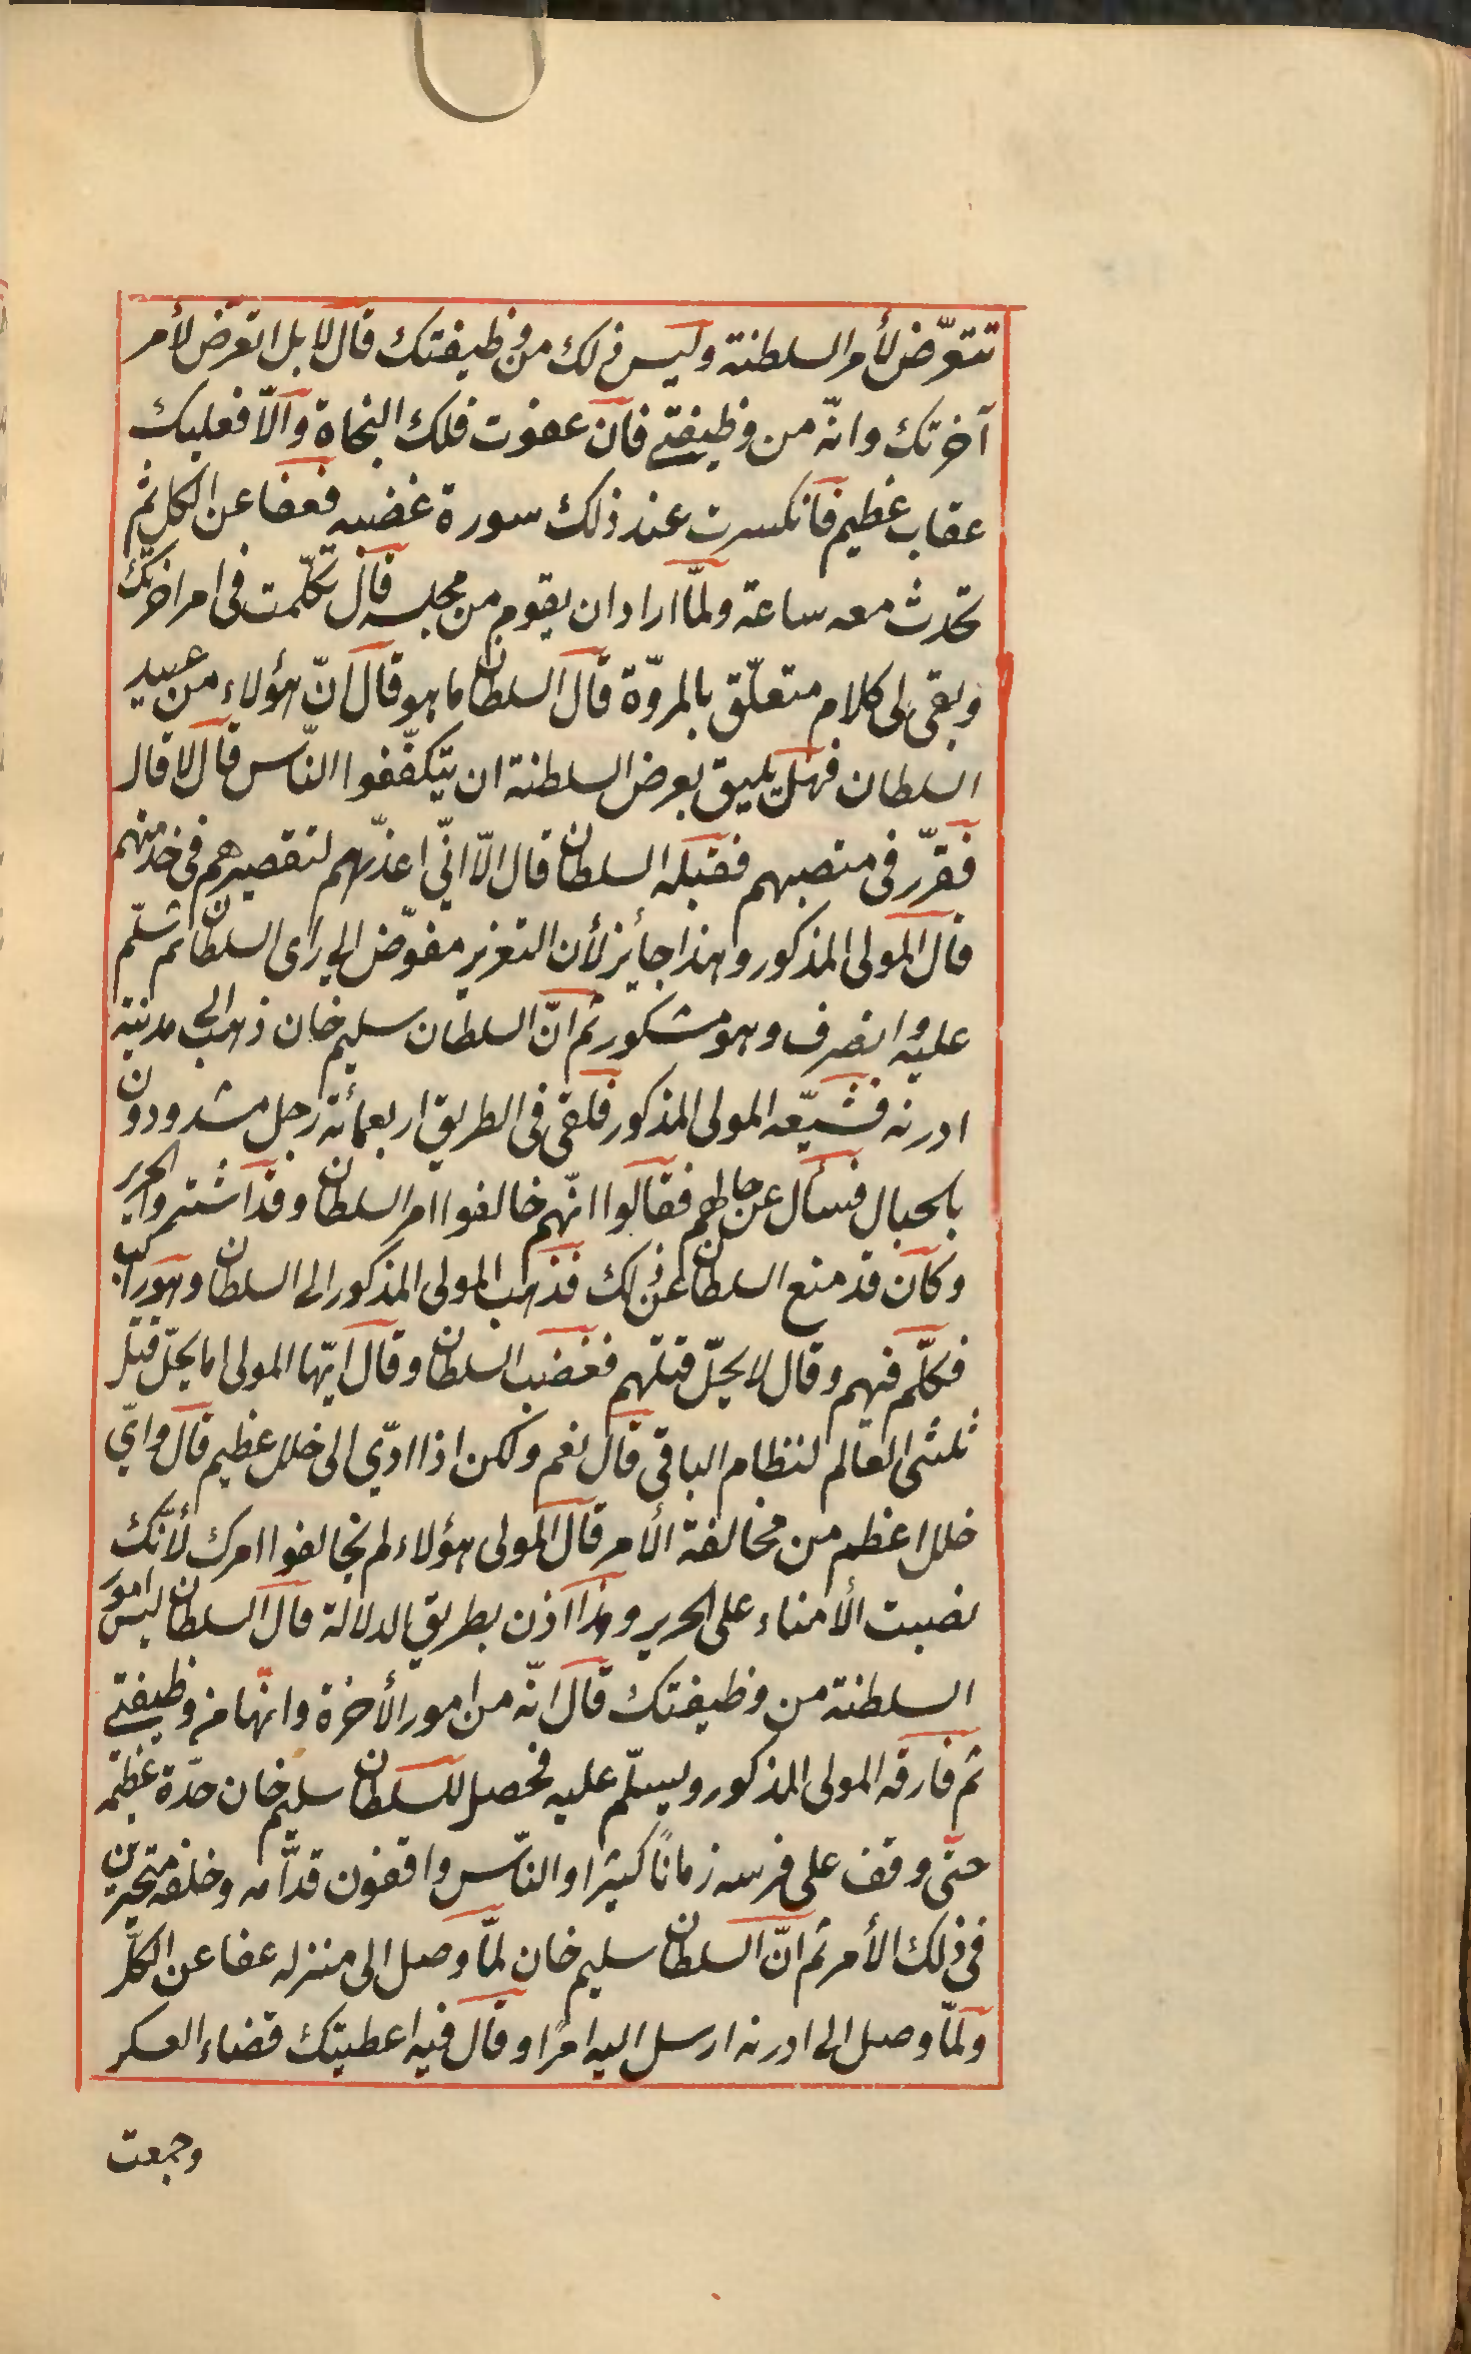 تتعرّض لأمر السلطنة وليس ذلك من وظيفتك قال لا بل اتعرض لأمر
آخرتك وانّه من وظيفتي فان عفوت فلك النجاة والّا فعليك
عقاب عظيم فانكسرت عند ذلك سورة غضبه فعفا عن الكل ثم
تحدث معه ساعة ولمّا اراد ان يقوم من مجلسه قال تكلّمت في امر اخرتك
وبقى لى كلام متعلّق بالمروّة قال السلطان ما هو قال انّ هؤلاء من عبيد
السلطان فهل يليق بعرض السلطنة ان يتكفّفوا النّاس قال لا قال
فقرّر في منصبهم فقبله السلطان قال الّا انّي اعذّبهم لتقصيرهم في خدمتهم
قال المولى المذكور وهذا جائز لأن التعزير مفوّض الى رأى السلطان ثم سلّم
عليه وانصرف وهو مشكور ثم انّ السلطان سليم خان ذهب الى مدينة
ادرنه فشيّعه المولى المذكور فلقى في الطريق اربعمائة رجل مشدودون
بالحبال فسأل عن حالهم فقالوا انّهم خالفوا امر السلطان وقد اشتروا الحرير
وكان قد منع السلطان عن ذلك فذهب المولى المذكور الى السلطان وهو راكب
فكلّم فيهم وقال لا يحلّ قتلهم فغضب السلطان وقال ايّها المولى اما يحلّ قتل
ثلثى العالم لنظام الباقى قال نعم ولكن اذا ادّى الى خلل عظيم قال واىّ
خلل اعظم من مخالفة الأمر قال المولى هؤلاء لم يخالفوا امرك لأنّك
نصبت الأمناء على الحرير وهذا اذن بطريق الدلالة قال السلطان ليس امور
السلطنة من وظيفتك قال انّه من امور الأخرة وانّها من وظيفتي
ثم فارقه المولى المذكور ويسلّم عليه فحصل للسلطان سليم خان حدّة عظيمه
حتّى وقف على فرسه زمانًا كثيرا والنّاس واقفون قدّامه وخلفه متحيّرين
في ذلك الأمر ثم انّ السلطان سليم خان لمّا وصل الى منزله عفا عن الكلّ
ولمّا وصل الى ادرنه ارسل اليه امرًا وقال فيه اعطيتك قضاء العسكر
وجمعت